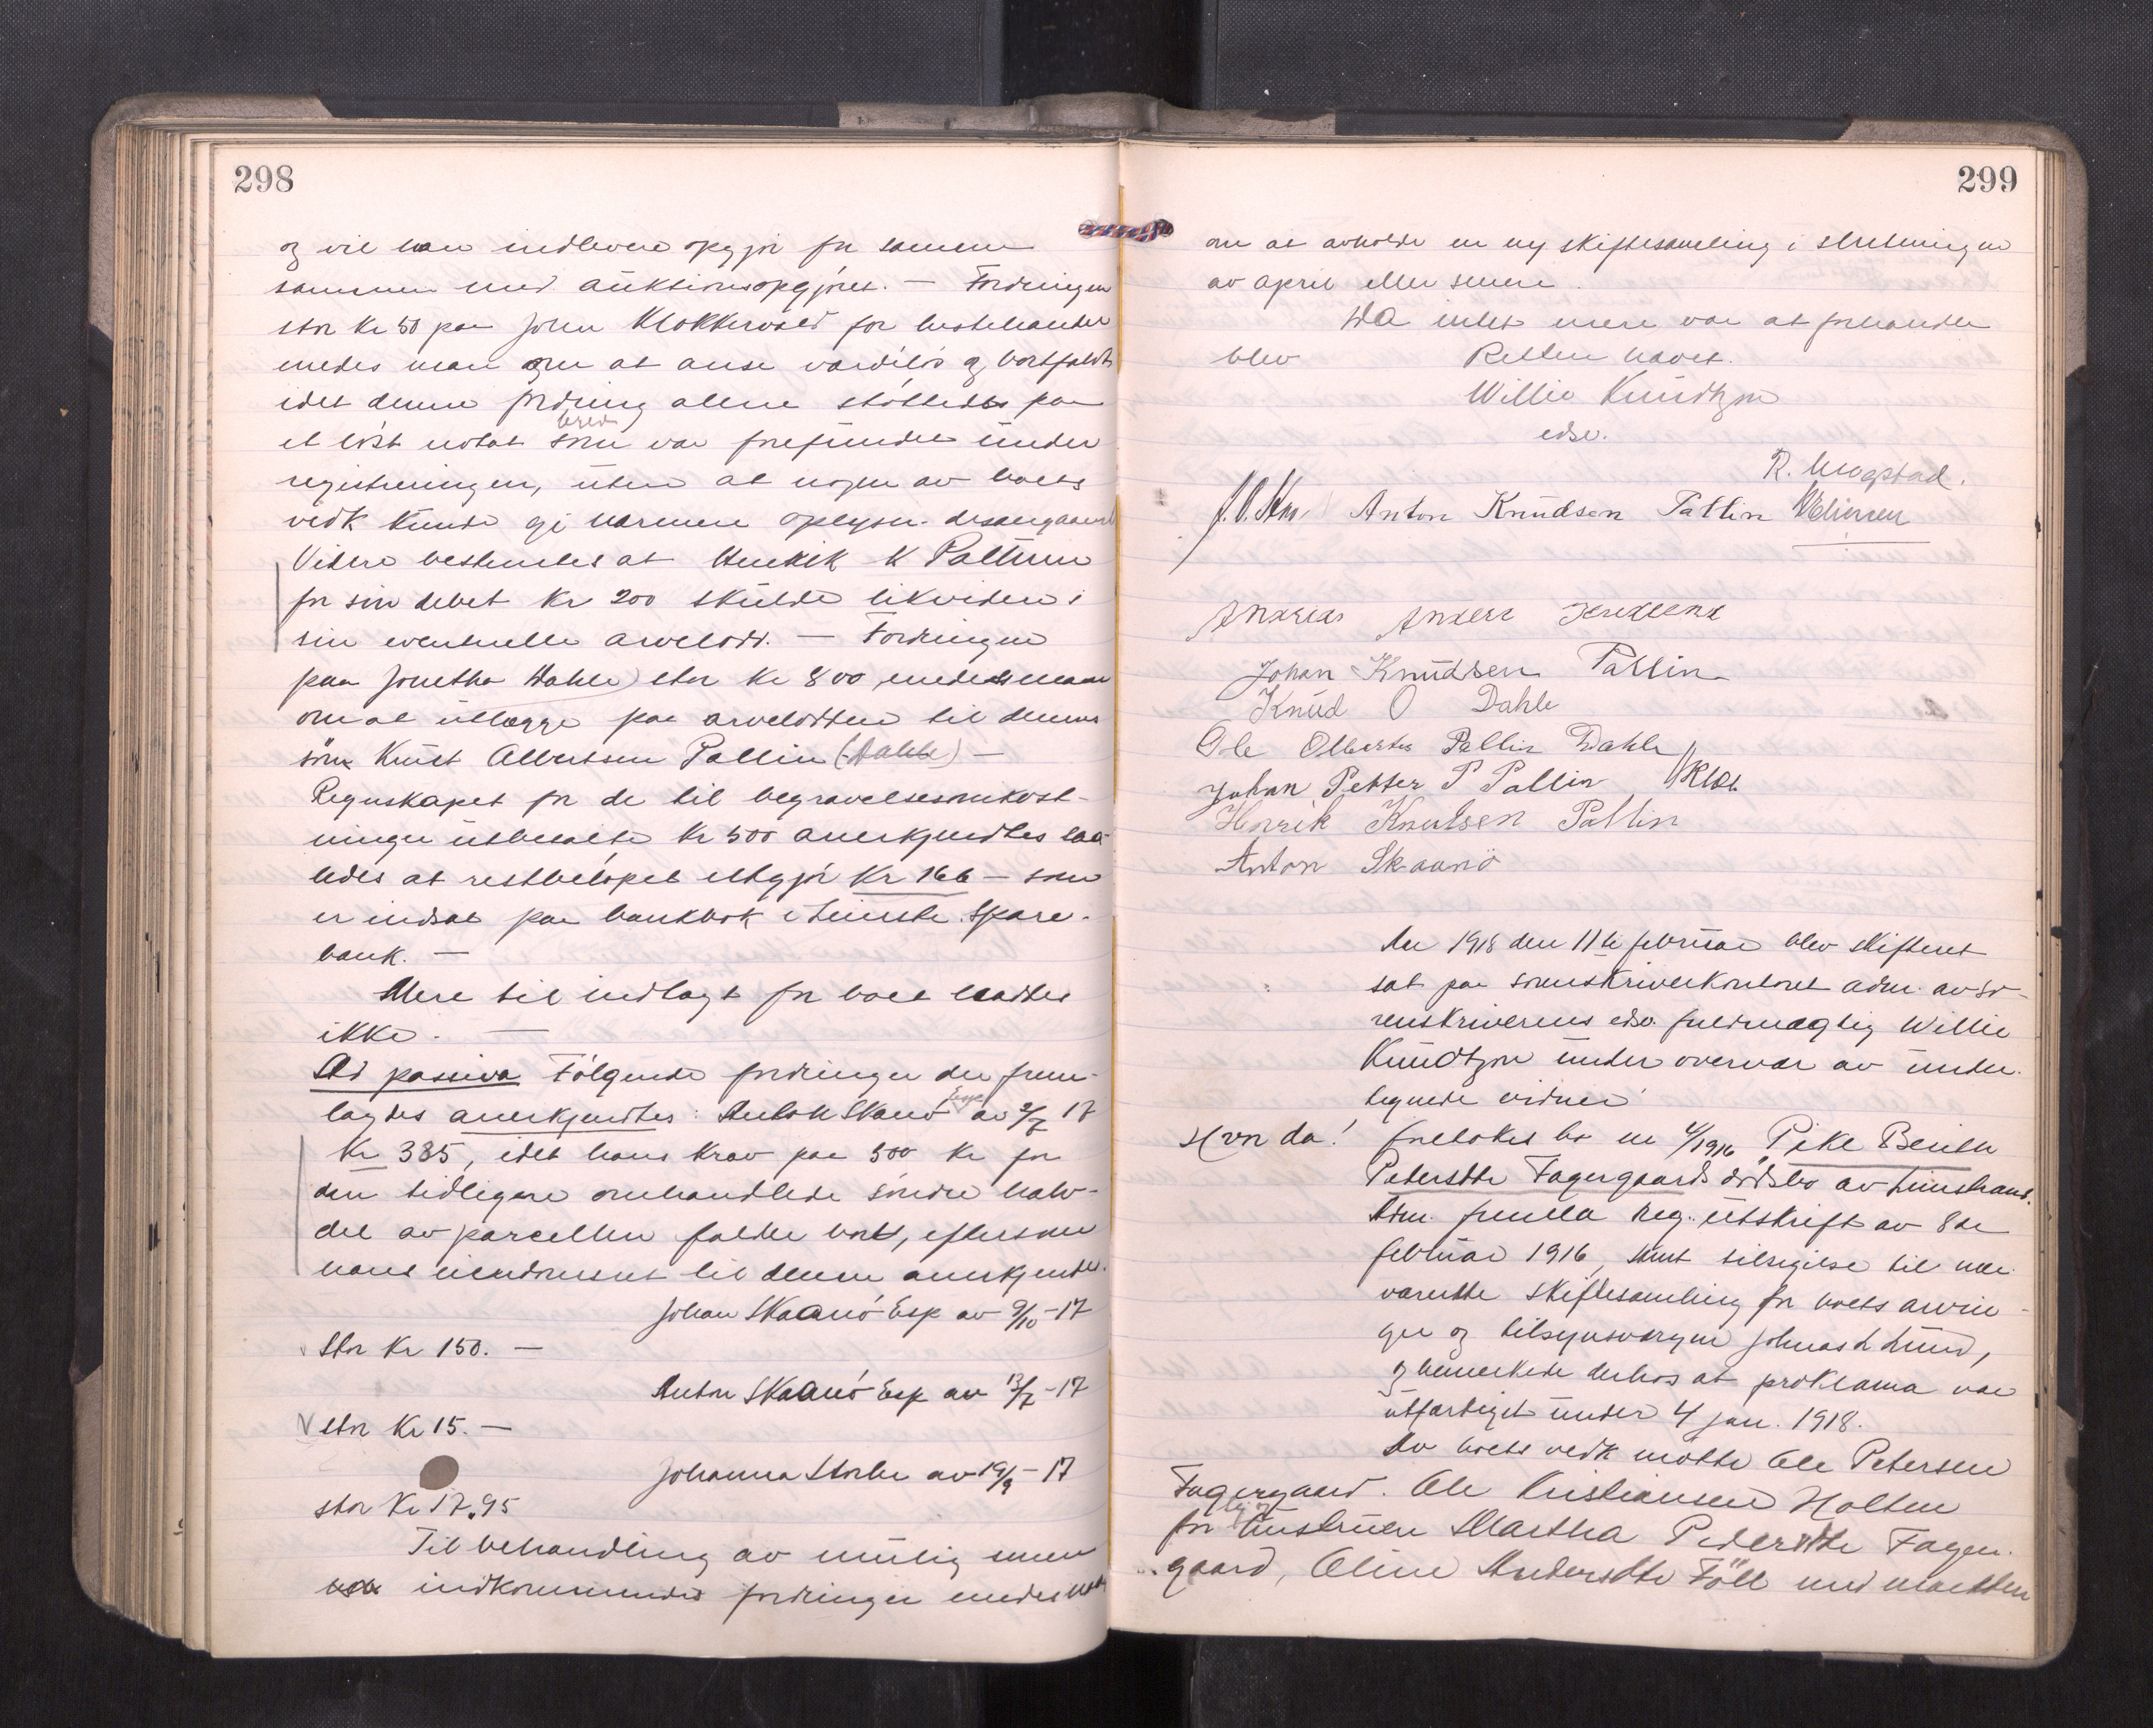 298
og vil han indlevere opgjør for samme
sammen med auktionsopgjøret. — Fordringen
stor kr 50 paa John Klokkervold for hestehandel
enedes man om at anse værdiløs og bortfaldt
idet denne fordring alene støttedes paa
et løst notat som var forefundet under
registreringen, uten at nogen av boets
vedk kunde gi nærmere oplysn. desangaaende
Videre bestemtes at Henrik K Pallin
for sin debet kr 200 skulde likvidere i
sin eventuelle arvelodd. — Fordringen
paa Jonetha Dahle stor kr 800 enedes man
om at utlægge paa arvelodden til dennes
søn Knut Albertsen Pallin (Dahle) —
Regnskapet for de til begravelsesomkost-
ninger utbetalte kr 500 anerkjendtes saa-
ledes at restbeløpet utgjør Kr 166 — som
er indsat paa bankbok i Spare-
bank. —
Mere til indtægt for boet haddes
ikke. —
Ad passiva Følgende fordringer der frem-
lagdes anerkjendtes: Anton Skanø av 17
Kr 385, idet hans krav paa 500 kr for
den tidligere omhandlede søndre halv-
del av parcellen falder bort, eftersom
hans eiendomsret til denne anerkjendtes.
Johan Skaanø Esp av 9/10-17
stor kr 150. —
Anton Skaanø Esp av 13/7-17
stor Kr 15. —
Johanna Storli av 19/9-17
stor Kr 17.95
Til behandling av mulig mere
indkommende fordringer enedes man
299
om at avholde en ny skiftesamling i slutningen
av april eller senere.
Da intet mere var at forhandle
blev Retten hævet.
Willie Knudtzon
edsv.
R. Mogstad.
Anton Knudsen Pallin
Andreas
Johan Knudsen Pallin
Knud O Dahle
Ole Albertsen Pallin Dahle
Johan Petter P Pallin
Henrik Knutsen Pallin
Anton Skaanø
Aar 1918 den 11te februar blev skifteret
sat paa sorenskriverkontoret adm. av so-
renskriverens edsv. fuldmægtig Willie
Knudtzon under overvær av under-
tegnede vidner
Hvor da! foretokes bo n 4/1916 Pike Berith
Petersdtr Fagergaards dødsbo av
Adm. fremla reg. utskrift av 8de
februar 1916, samt tilsigelse til nær-
værende skiftesamling for boets arvin-
ger og tilsynsvergen Lund,
og bemerkede derhos at proklama var
utfærdiget under 4 jan. 1918.
Av boets vedk møtte Ole Petersen
Fagergaard. Ole Kristiansen Holten
for hustruen Martha Pedersdtr Fager-
gaard, Oline Andersdtr med